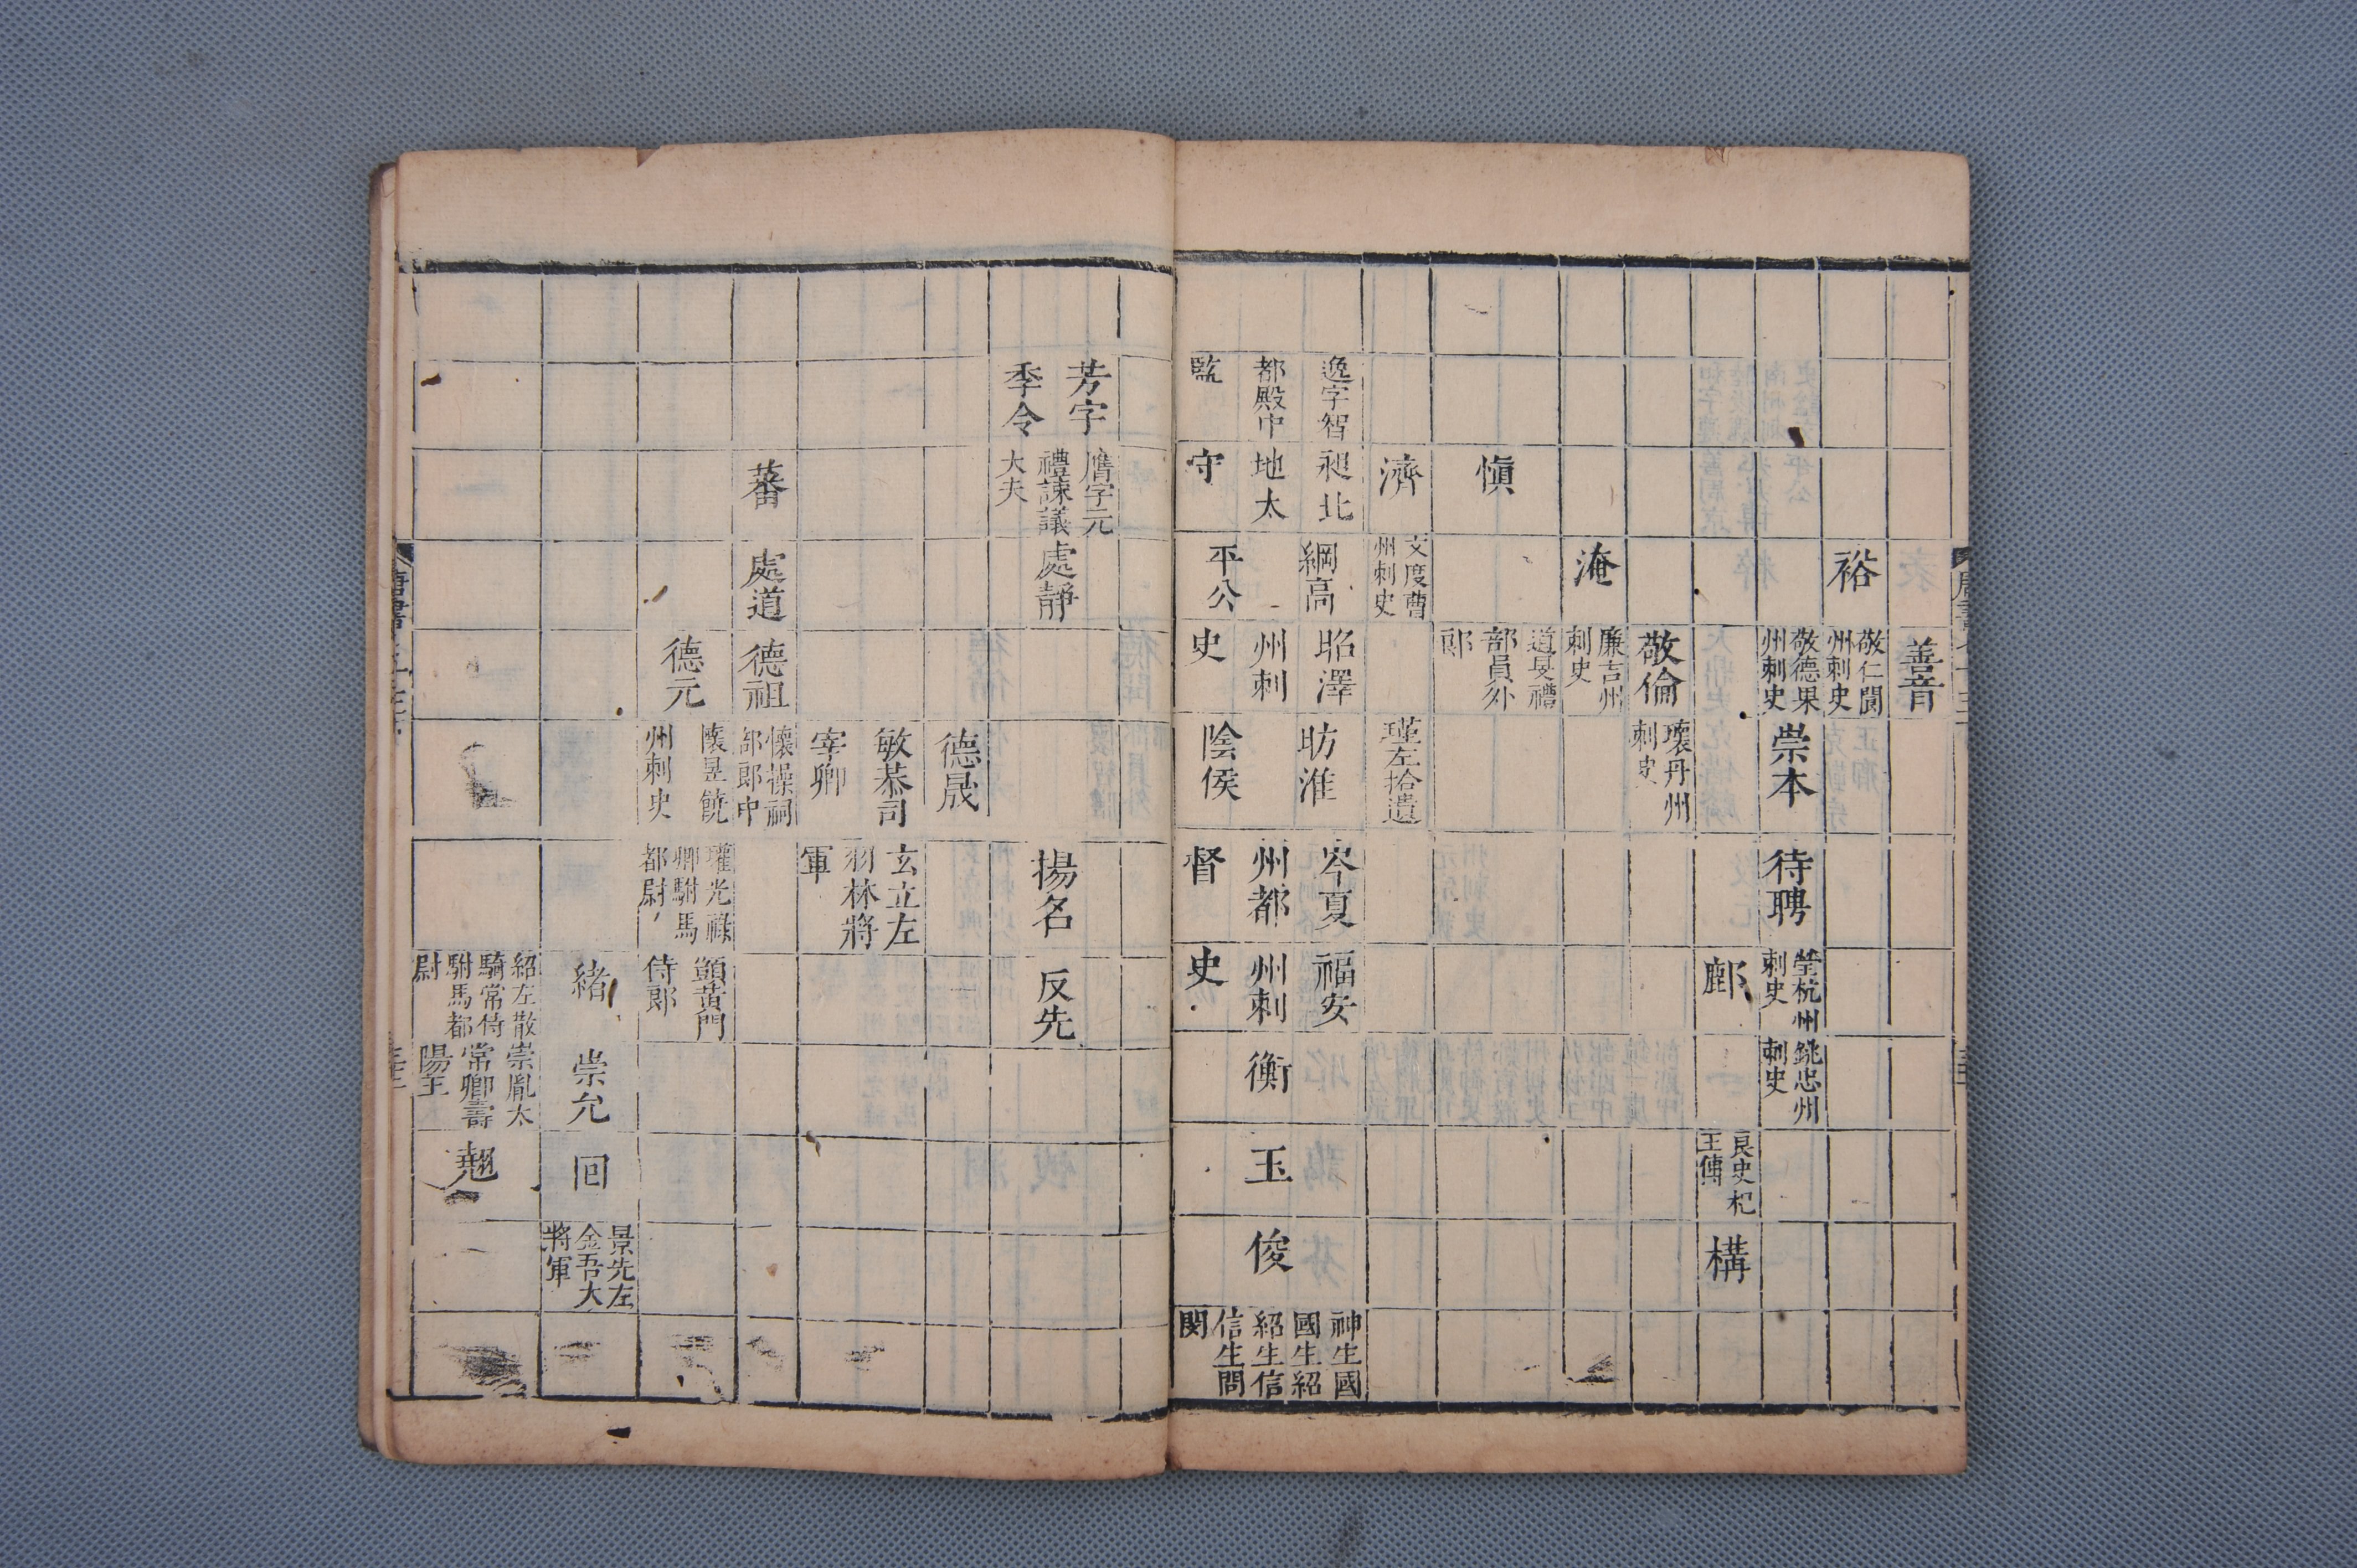 善音
裕
敬仁閬
州刺史
敬德果
州刺史
崇本
待聘
瑩杭州
刺史
銚忠州
刺史
鄜
良史杞
王傅
構
敬倫
瓌丹州
刺史
淹
廉吉州
刺史
慎
道旻禮
部員外
郎
濟
文度曹
州刺史
瑾左拾遺
逸字智
都殿中
監
昶北
地太
守
綱高
平公
昭澤
州刺
史
昉淮
陰侯
岑夏
州都
督
福安
州刺
史
衡
玉
俊
神生國
國生紹
紹生信
信生問
閔
芳字
季令
膺字元
禮諫議
大夫
處靜
揚名
反先
德晟
敏恭司
宰卿
玄立左
羽林將
軍
蕃
處道
德祖
懷操祠
部郎中
德元
懷昱饒
州刺史
瓘光祿
卿駙馬
都尉
顗黃門
侍郎
緒
崇允
回
景先左
金吾大
將軍
紹左散
騎常侍
駙馬都
尉
崇胤太
常卿壽
陽王
翹